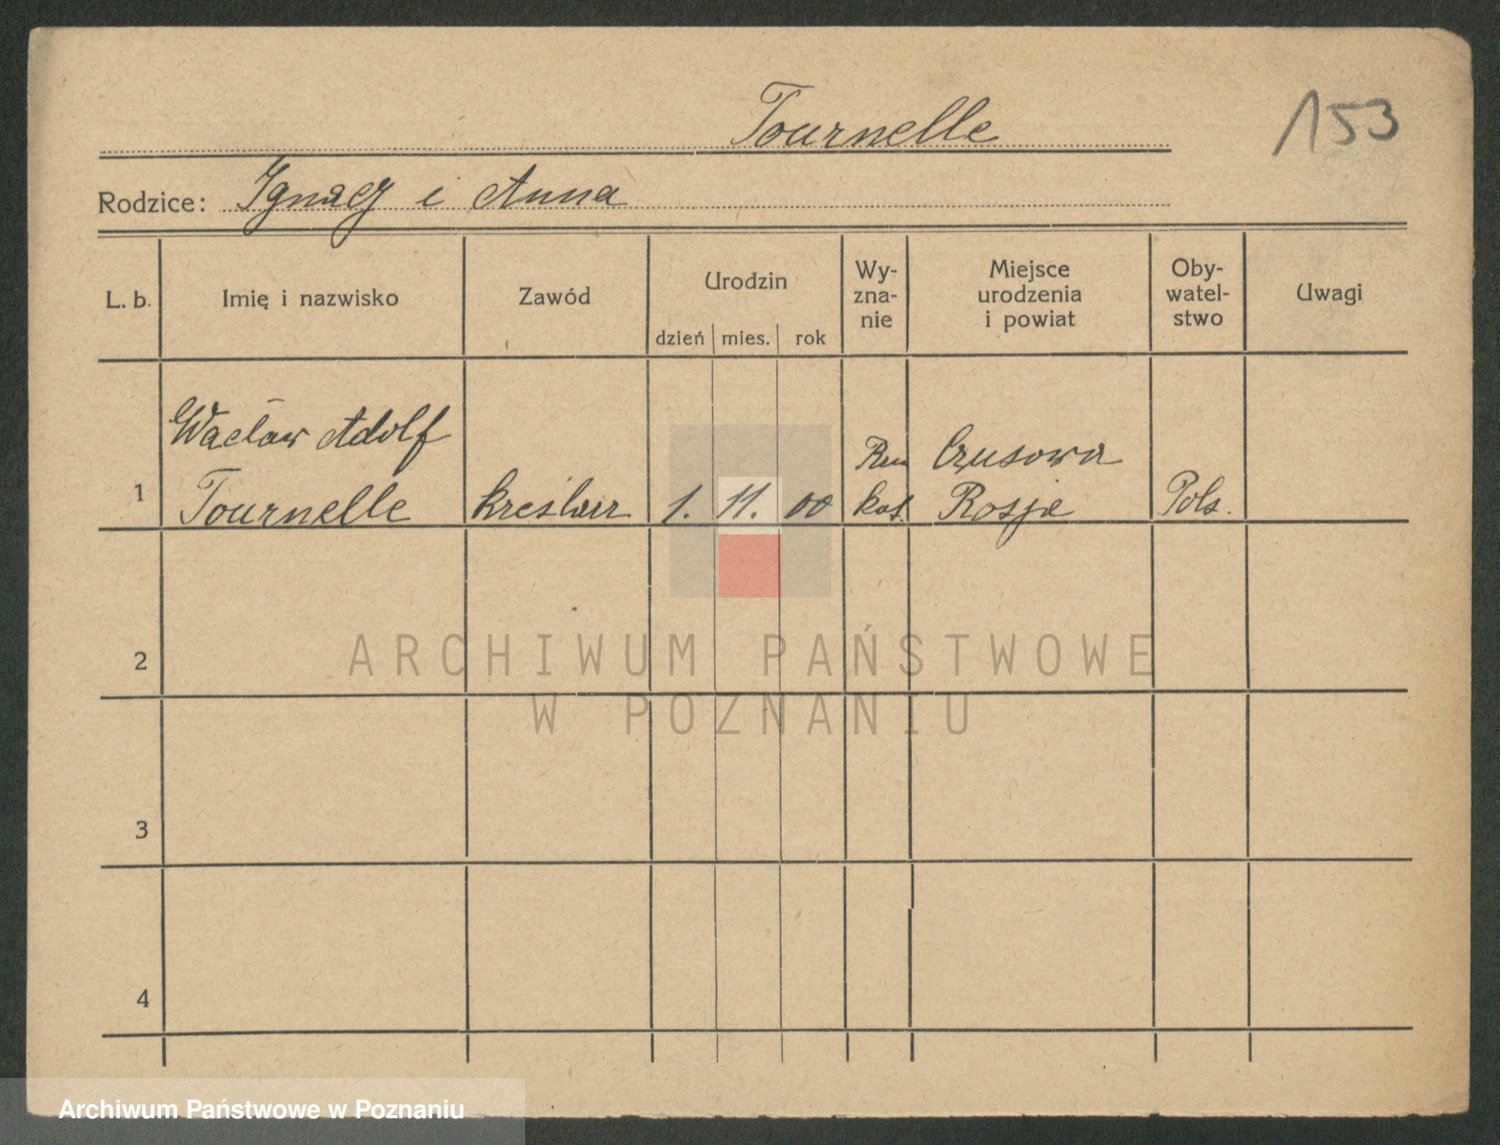 Tournelle
153
Rodzice: Ignacy i Anna
L. b.
Imię i nazwisko
Zawód
Urodzin
dzień mies. rok
Wy-
zna-
nie
Miejsce
urodzenia
i powiat
Oby-
watel-
stwo
Uwagi
1
Wacław Adolf
Tournelle
kreślarz
1. 11. 00
kat.
Czusowa
Rosja
Pols.
2
3
4
ARCHIWUM PAŃSTWOWE
W POZNANIU
Archiwum Państwowe w Poznaniu